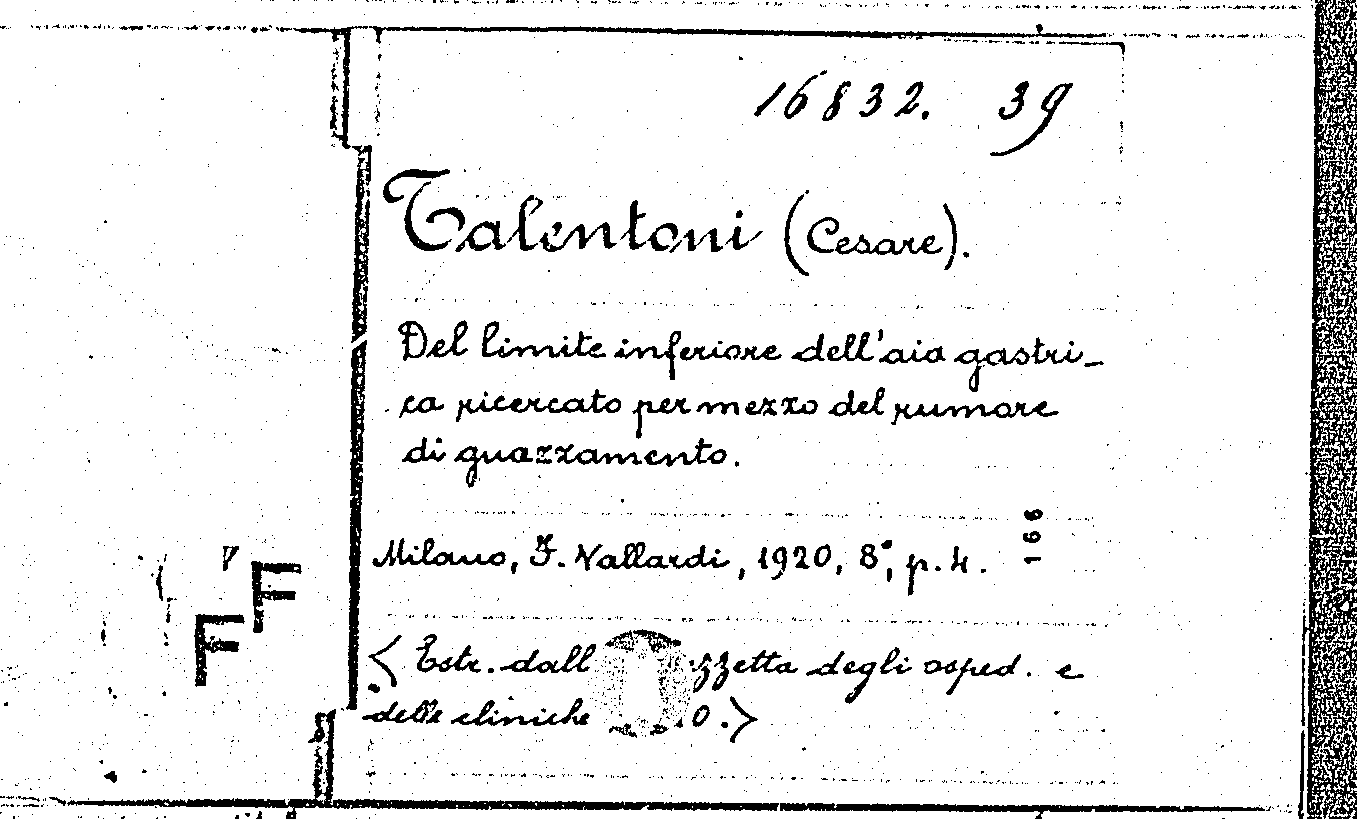 16832. 39
Talentoni (Cesare).
Del limite inferiore dell'aia gastri-
ca ricercato per mezzo del rumore
di guazzamento.
166
Milano, F. Vallardi, 1920, 8°, p. 4.
F
F
< Estr. dall zzetta degli osped. e
delle cliniche 0.>